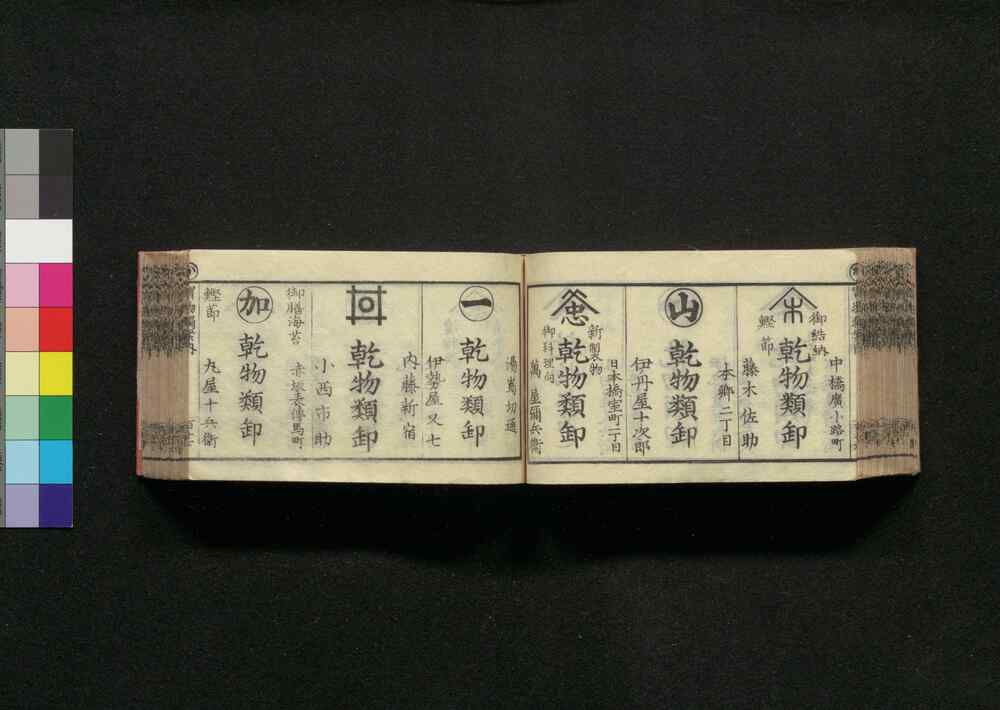 御結納
中橋廣小路町
乾物類卸
鰹節
藤木佐助
本郷二丁目
山
乾物類卸
伊丹屋十次郎
新製物
日本橋室町二丁目
乾物類卸
御料理向
萬屋彌兵衛
湯嶌切通
一
乾物類卸
伊勢屋又七
内藤新宿
乾物類卸
小西市助
御膳海苔
赤坂表傳馬町
加
乾物類卸
鰹節
丸屋十兵衛